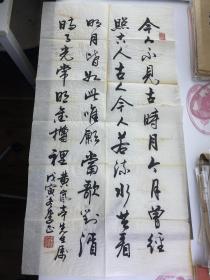 今人不见古時月今月曾經
照古人古人今人若流水共看
明月皆如此唯願當歌對酒
時月光常照金樽裡
戊寅